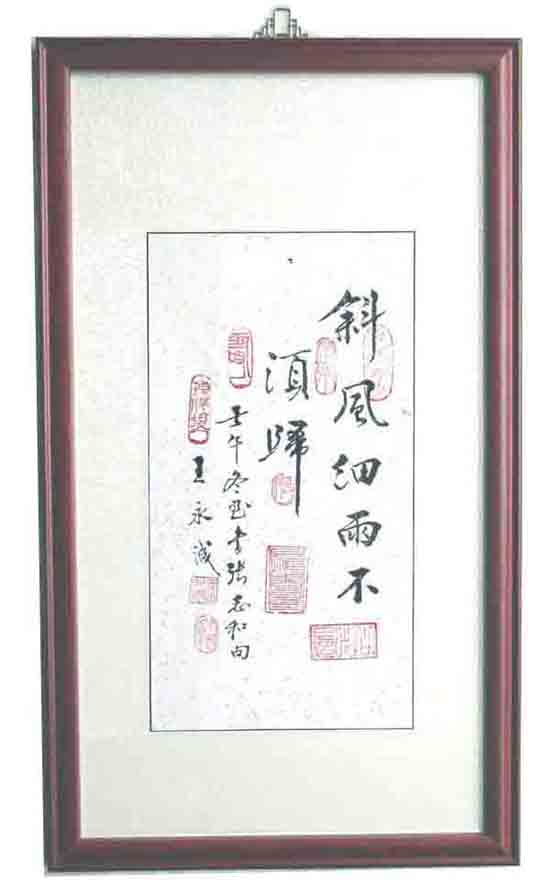 斜風细雨不
須歸
壬午冬月書張志和句
王永诚